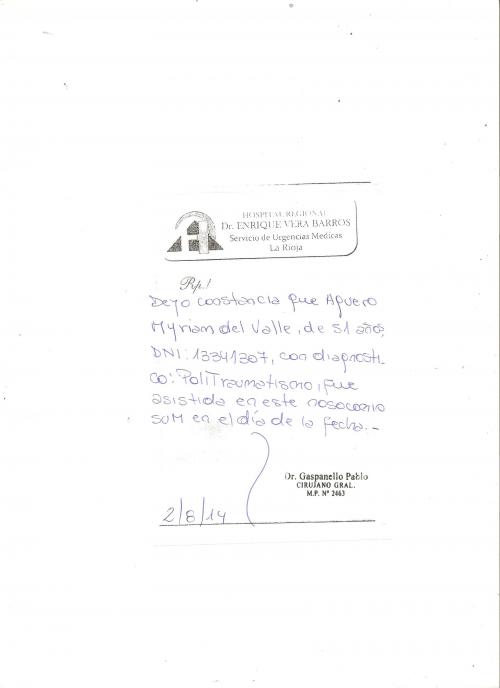 HOSPITAL REGIONAL
Dr. ENRIQUE VERA BARROS
Servicio de Urgencias Medicas
La Rioja
Rp./
Dejo constancia que Aguero
Myriam del Valle, de 51 años,
DNI: 13341307, con diagnosti-
co: PoliTraumatismo, fue
asistida en este nosocomio
SUM en el día de la fecha.-
Dr. Gaspanello Pablo
CIRUJANO GRAL.
M.P. Nº 2463
2/8/14